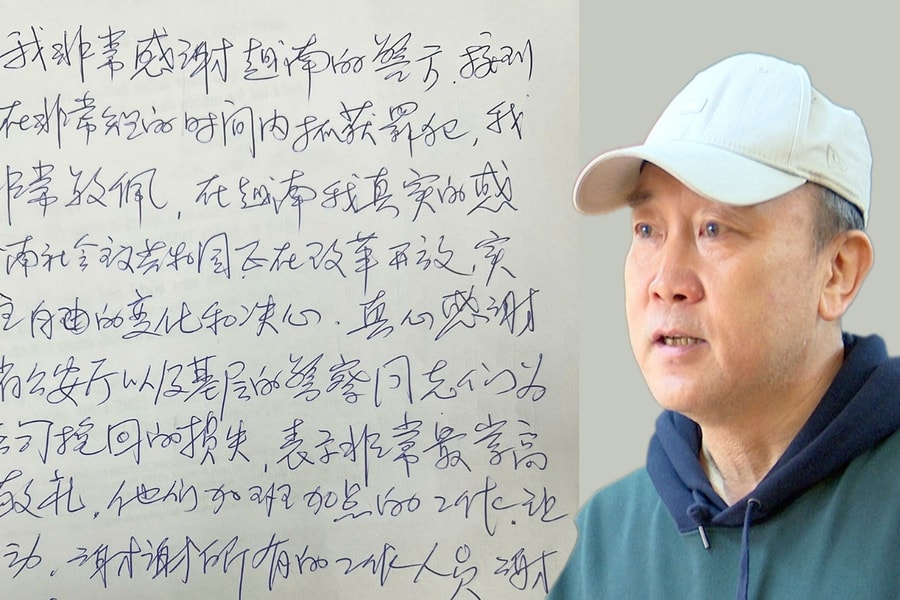 我非常感谢越南的警方,接到
在非常短的时间内抓获罪犯,我
非常敬佩,在越南我真实的感
南社会主义共和国正在改革开放,实
主自由的变化和决心.真心感谢
省公安厅以及基层的警察同志们为
公司挽回的损失,表示非常最崇高
敬礼,他们加班加点的工作,让
动.谢谢所有的工作人员 谢